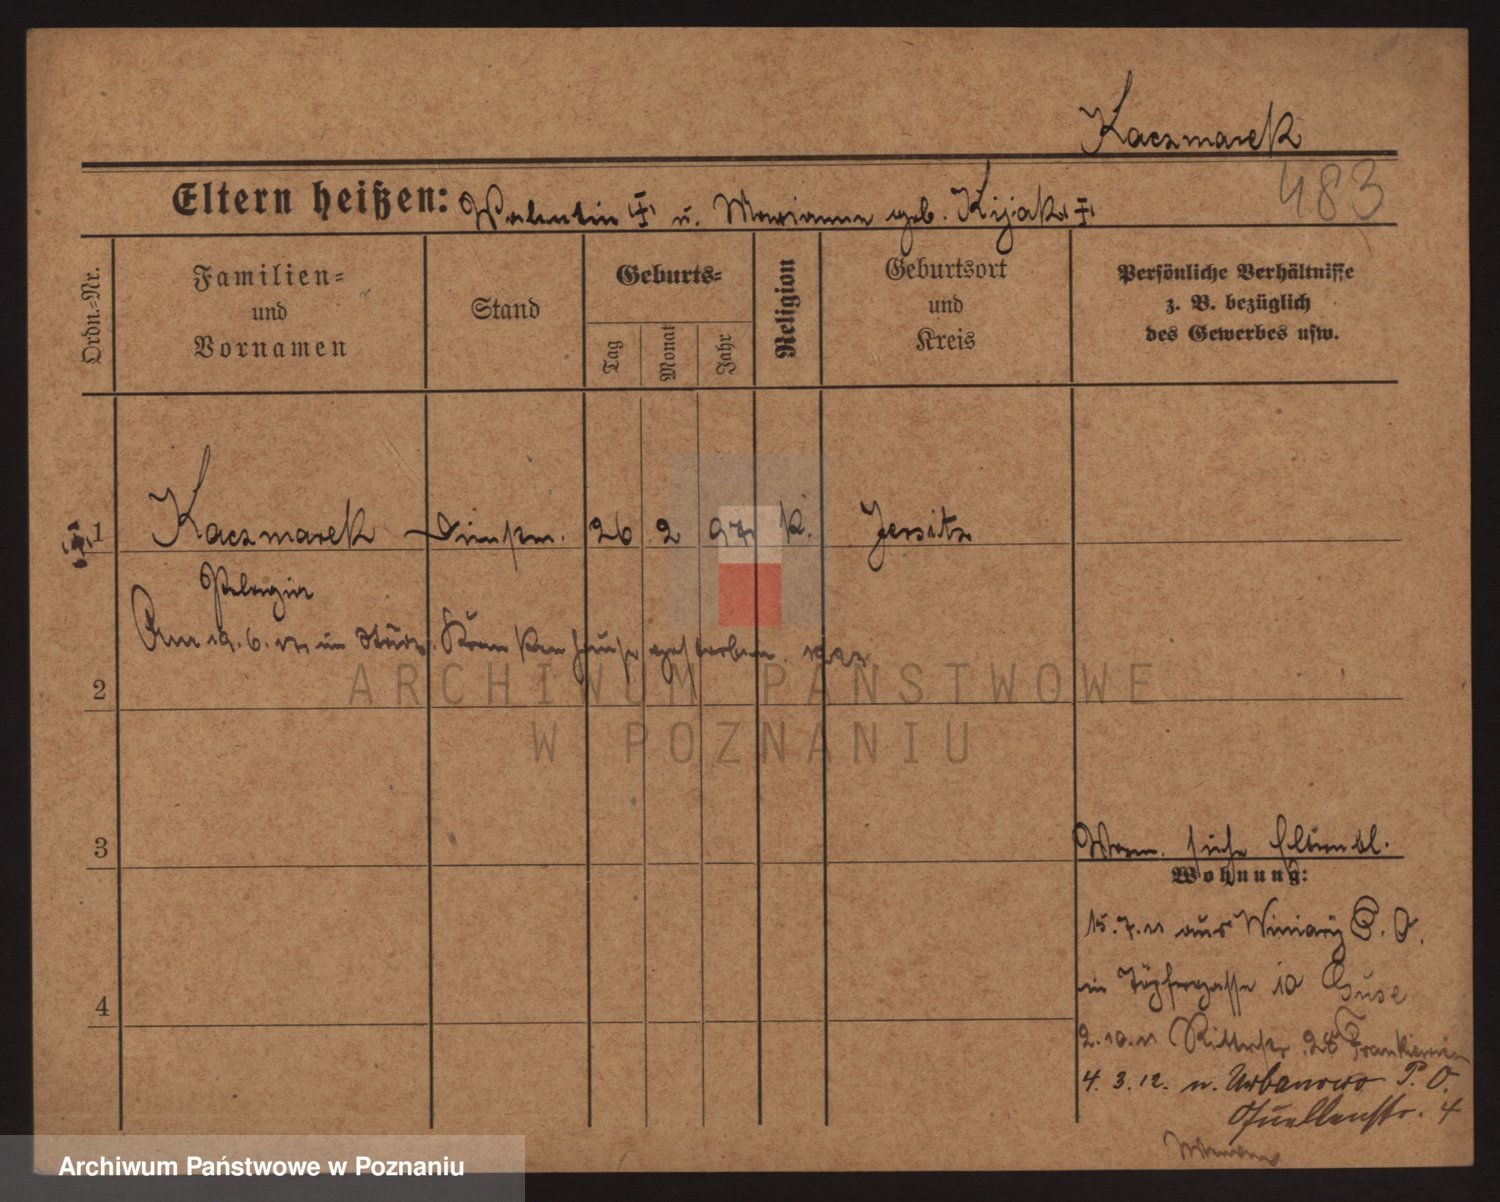 Kaczmarek
483
Eltern heißen: Valentin u. Marianna geb. Kijak
Ordn.-Nr.
Familien-
und
Vornamen
Stand
Geburts-
Tag
Monat
Jahr
Religion
Geburtsort
und
Kreis
Persönliche Verhältnisse
z. B. bezüglich
des Gewerbes usw.
1 Kaczmarek Dienstm. 26 2 97 k. Jersitz
Pelagia
Am 19. 6. im städt. Krankenhause gestorben.
2
ARCHIWUM PAŃSTWOWE
W POZNANIU
3
Vorm. siehe Elternbl.
Wohnung:
15.7.11 aus Winiary P. O.
in Töpfergasse 10
4
2.10.11 Ritterstr. 28
4. 3. 12. n. Urbanowo P. O.
Quellenstr. 4
Archiwum Państwowe w Poznaniu